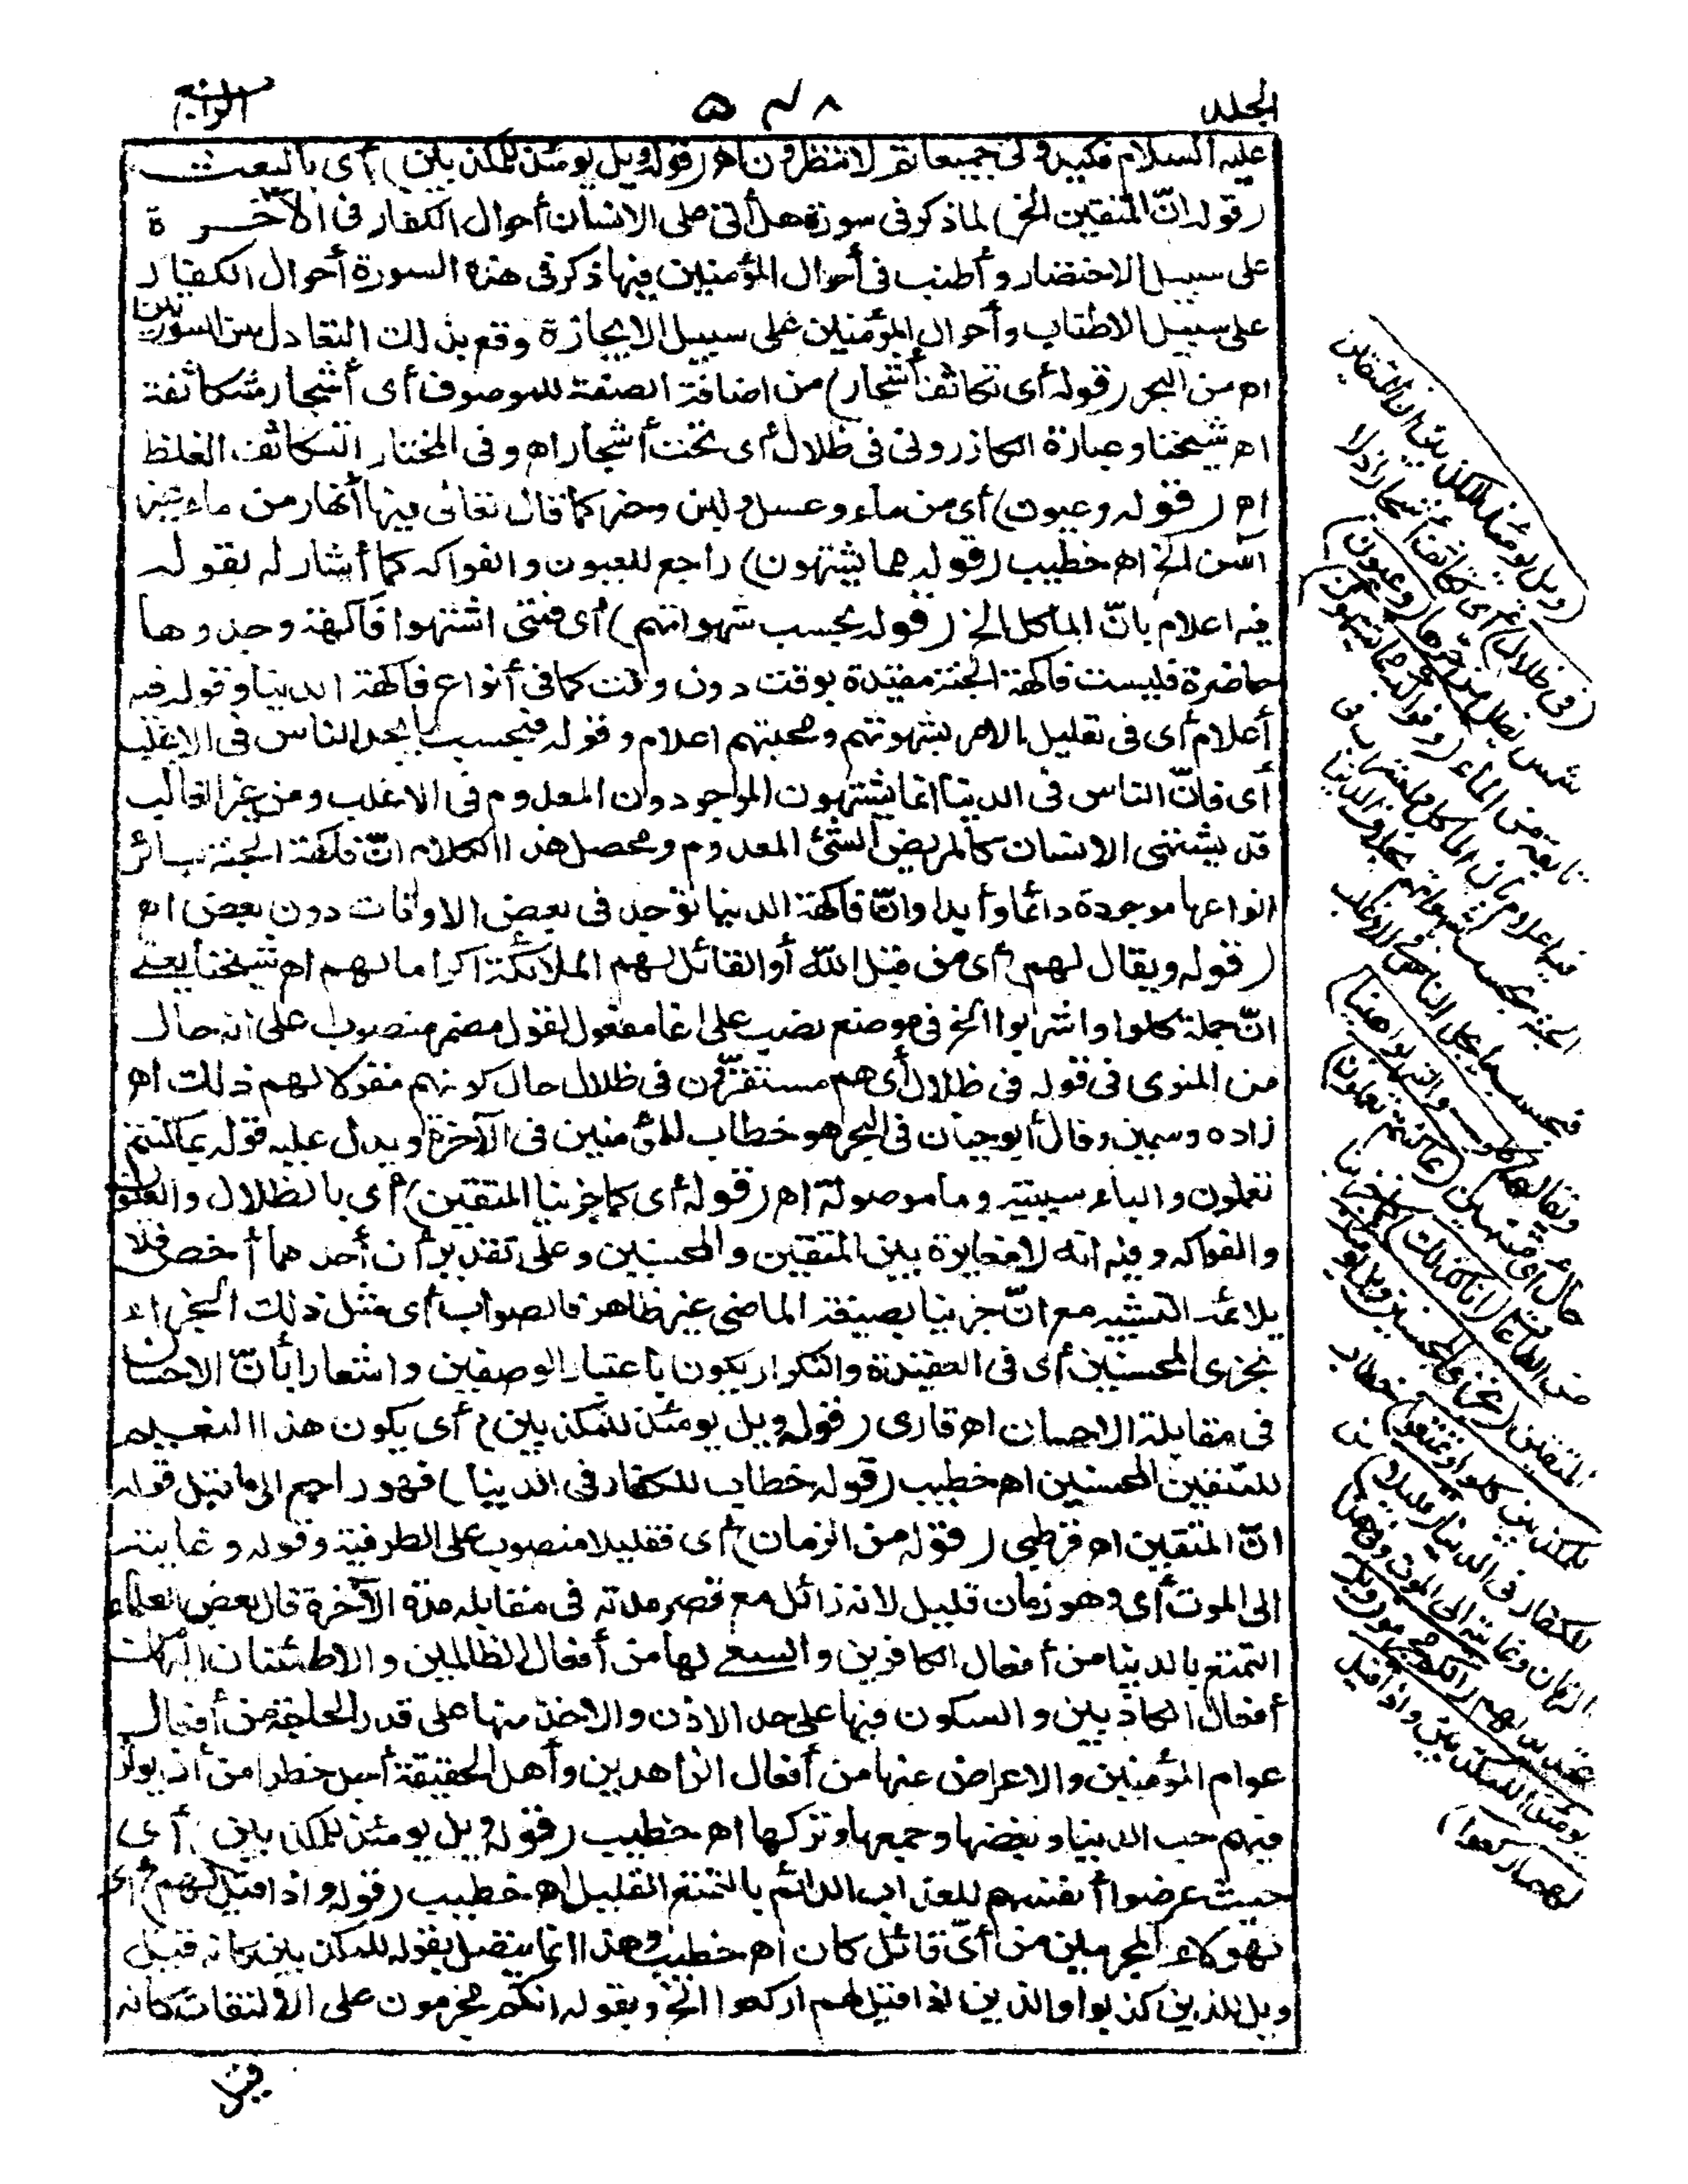 الجلد ٥٤٨ الرابع
عليه السلام فكيدوني جميعا ثم لا تنظرون اه (قوله ويل يومئذ للمكذبين) أى بالبعث
(قوله انّ المتقين الخ) لما ذكر فى سورة هل أتى على الانسان أحوال الكفار فى الآخرة
على سبيل الاختصار وأطنب فى أحوال المؤمنين فيها ذكر فى هذه السورة أحوال الكفار
على سبيل الاطناب وأحوال المؤمنين على سبيل الايجازة وقع بذلك التعادل بين السورتين
اه من البحر (قوله أى تكاثف أشجار) من اضافة الصفة للموصوف أى أشجار متكاثفة
اه شيخنا وعبارة الكازرونى فى ظلال أى تحت أشجار اه وفى المختار التكاثف الغلظ
اه (قوله وعيون) أى من ماء وعسل ولبن وخمر كما قال تعالى فيها أنهار من ماء غير
آسن الخ اه خطيب (قوله مما يشتهون) راجع للعيون والفواكه كما أشار له بقوله
فيه اعلام بانّ المأكل الخ (قوله بحسب شهواتهم) أى فمتى اشتهوا فاكهة وجدوها
حاضرة فليست فاكهة الجنة مقيّدة بوقت دون وقت كما فى أنواع فاكهة الدنيا وقوله فيه
أعلام أى فى تعليل الامر بشهوتهم ومحبتهم اعلام وقوله فبحسب ما يجد الناس فى الاغلب
أى فانّ الناس فى الدنيا انما يشتهون الموجود دون المعدوم فى الاغلب ومن غير الغالب
قد يشتهى الانسان كالمريض الشئ المعدوم ومحصل هذا الكلام انّ فاكهة الجنة بسائر
انواعها موجودة دائما وأبدا وانّ فاكهة الدنيا توجد فى بعض الاوقات دون بعض اه
(قوله ويقال لهم) أى من قبل الله أو القائل لهم الملائكة اكراما لهم اه شيخنا يعنے
انّ جملة كلوا واشربوا الخ فى موضع نصب على انها مفعول لقول مضمر منصوب على انه حال
من المنوى فى قوله فى ظلال أى هم مستقرّون فى ظلال حال كونهم مقولا لهم ذلك اه
زاده وسمين وقال أبو حيان فى البحر هو خطاب للمؤمنين فى الآخرة ويدل عليه قوله بما كنتم
تعملون والباء سببية وما موصولة اه (قوله أى كما جزينا المتقين) أى بالظلال والعيون
والفواكه وفيه انه لا مغايرة بين المتقين والمحسنين وعلى تقدير أن أحدهما أخص فلا
يلائمه التشبيه مع انّ جزينا بصيغة الماضى غير ظاهر فالصواب أى مثل ذلك الجزاء
نجزى المحسنين أى فى العقيدة والتكرار يكون باعتبار الوصفين واشعارا بأنّ الاحسان
فى مقابلة الاحسان اه قارى (قوله ويل يومئذ للمكذبين) أى يكون هذا النعيم
للمتقين المحسنين اه خطيب (قوله خطاب للكفار فى الدنيا) فهو راجع الى ما قبل قوله
انّ المتقين اه قرطبى (قوله من الزمان) أى فقليلا منصوب على الظرفية وقوله وغايته
الى الموت أى وهو زمان قليل لانه زائل مع قصر مدته فى مقابله مدة الآخرة قال بعض العلماء
التمتع بالدنيا من أفعال الكافرين والسعے لها من أفعال الظالمين والاطمئنان اليها من
أفعال الكاذبين والسكون فيها على حد الاذن والاخذ منها على قدر الحاجة من أفعال
عوام المؤمنين والاعراض عنها من أفعال الزاهدين وأهل الحقيقة أجل خطرا من أن يؤثر
فيهم حب الدنيا وبغضها وجمعها وتركها اه خطيب (قوله ويل يومئذ للمكذبين) أى
حيث عرضوا أنفسهم للعذاب الدائم بالتمتع القليل اه خطيب (قوله واذا قيل لهم) أى
لهؤلاء المجرمين من أىّ قائل كان اه خطيب وهذا انما يتصل بقوله للمكذبين كانه قيل
ويل للذين كذبوا والذين اذا قيل لهم اركعوا الخ وبقوله انكم مجرمون على الالتفات كانه
قيل
(ويل يومئذ للمكذبين ان المتقين
فى ظلال) أى تكاثف أشجار اذ لا
شمس يظل من حرها (وعيون)
نابعة من الماء (وفواكه مما يشتهون)
فيه اعلام بان المأكل والمشرب فى
الجنة بحسب شهواتهم بخلاف الدنيا
فبحسب ما يجد الناس فى الاغلب
ويقال لهم (كلوا واشربوا هنيئا)
حال أى متهنئين (بما كنتم تعملون)
من الطاعات (انا كذلك) كما جزينا
المتقين (نجزى المحسنين ويل يومئذ
للمكذبين كلوا وتمتعوا) خطاب
للكفار فى الدنيا (قليلا) من
الزمان وغايته الى الموت وفى هذا
تهديد لهم (انكم مجرمون ويل
يومئذ للمكذبين واذا قيل
لهم اركعوا)